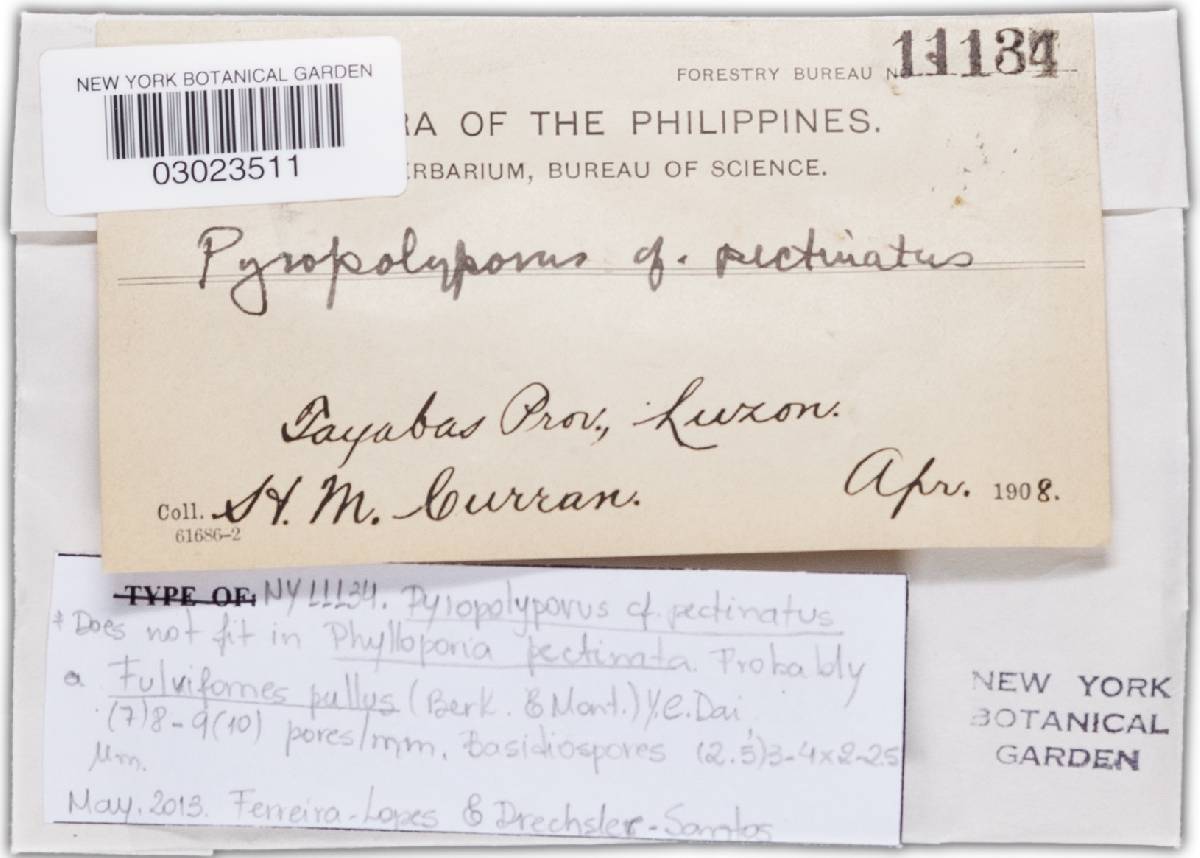 NEW YORK BOTANICAL GARDEN
03023511
FORESTRY BUREAU No. 11134
RA OF THE PHILIPPINES.
ERBARIUM, BUREAU OF SCIENCE.
Pyropolyporus cf. pectinatus
Tayabas Prov., Luzon.
Coll. H. M. Curran. Apr. 1908.
61686-2
TYPE OF: NY 11134. Pyropolyporus cf. pectinatus
* Does not fit in Phylloporia pectinata. Probably
a Fulvifomes pullus (Berk. & Mont.) Y.C. Dai
(7)8-9(10) pores/mm. Basidiospores (2.5)3-4×2-2.5
μm.
May. 2013. Ferreira-Lopes & Drechsler-Santos
NEW YORK
BOTANICAL
GARDEN